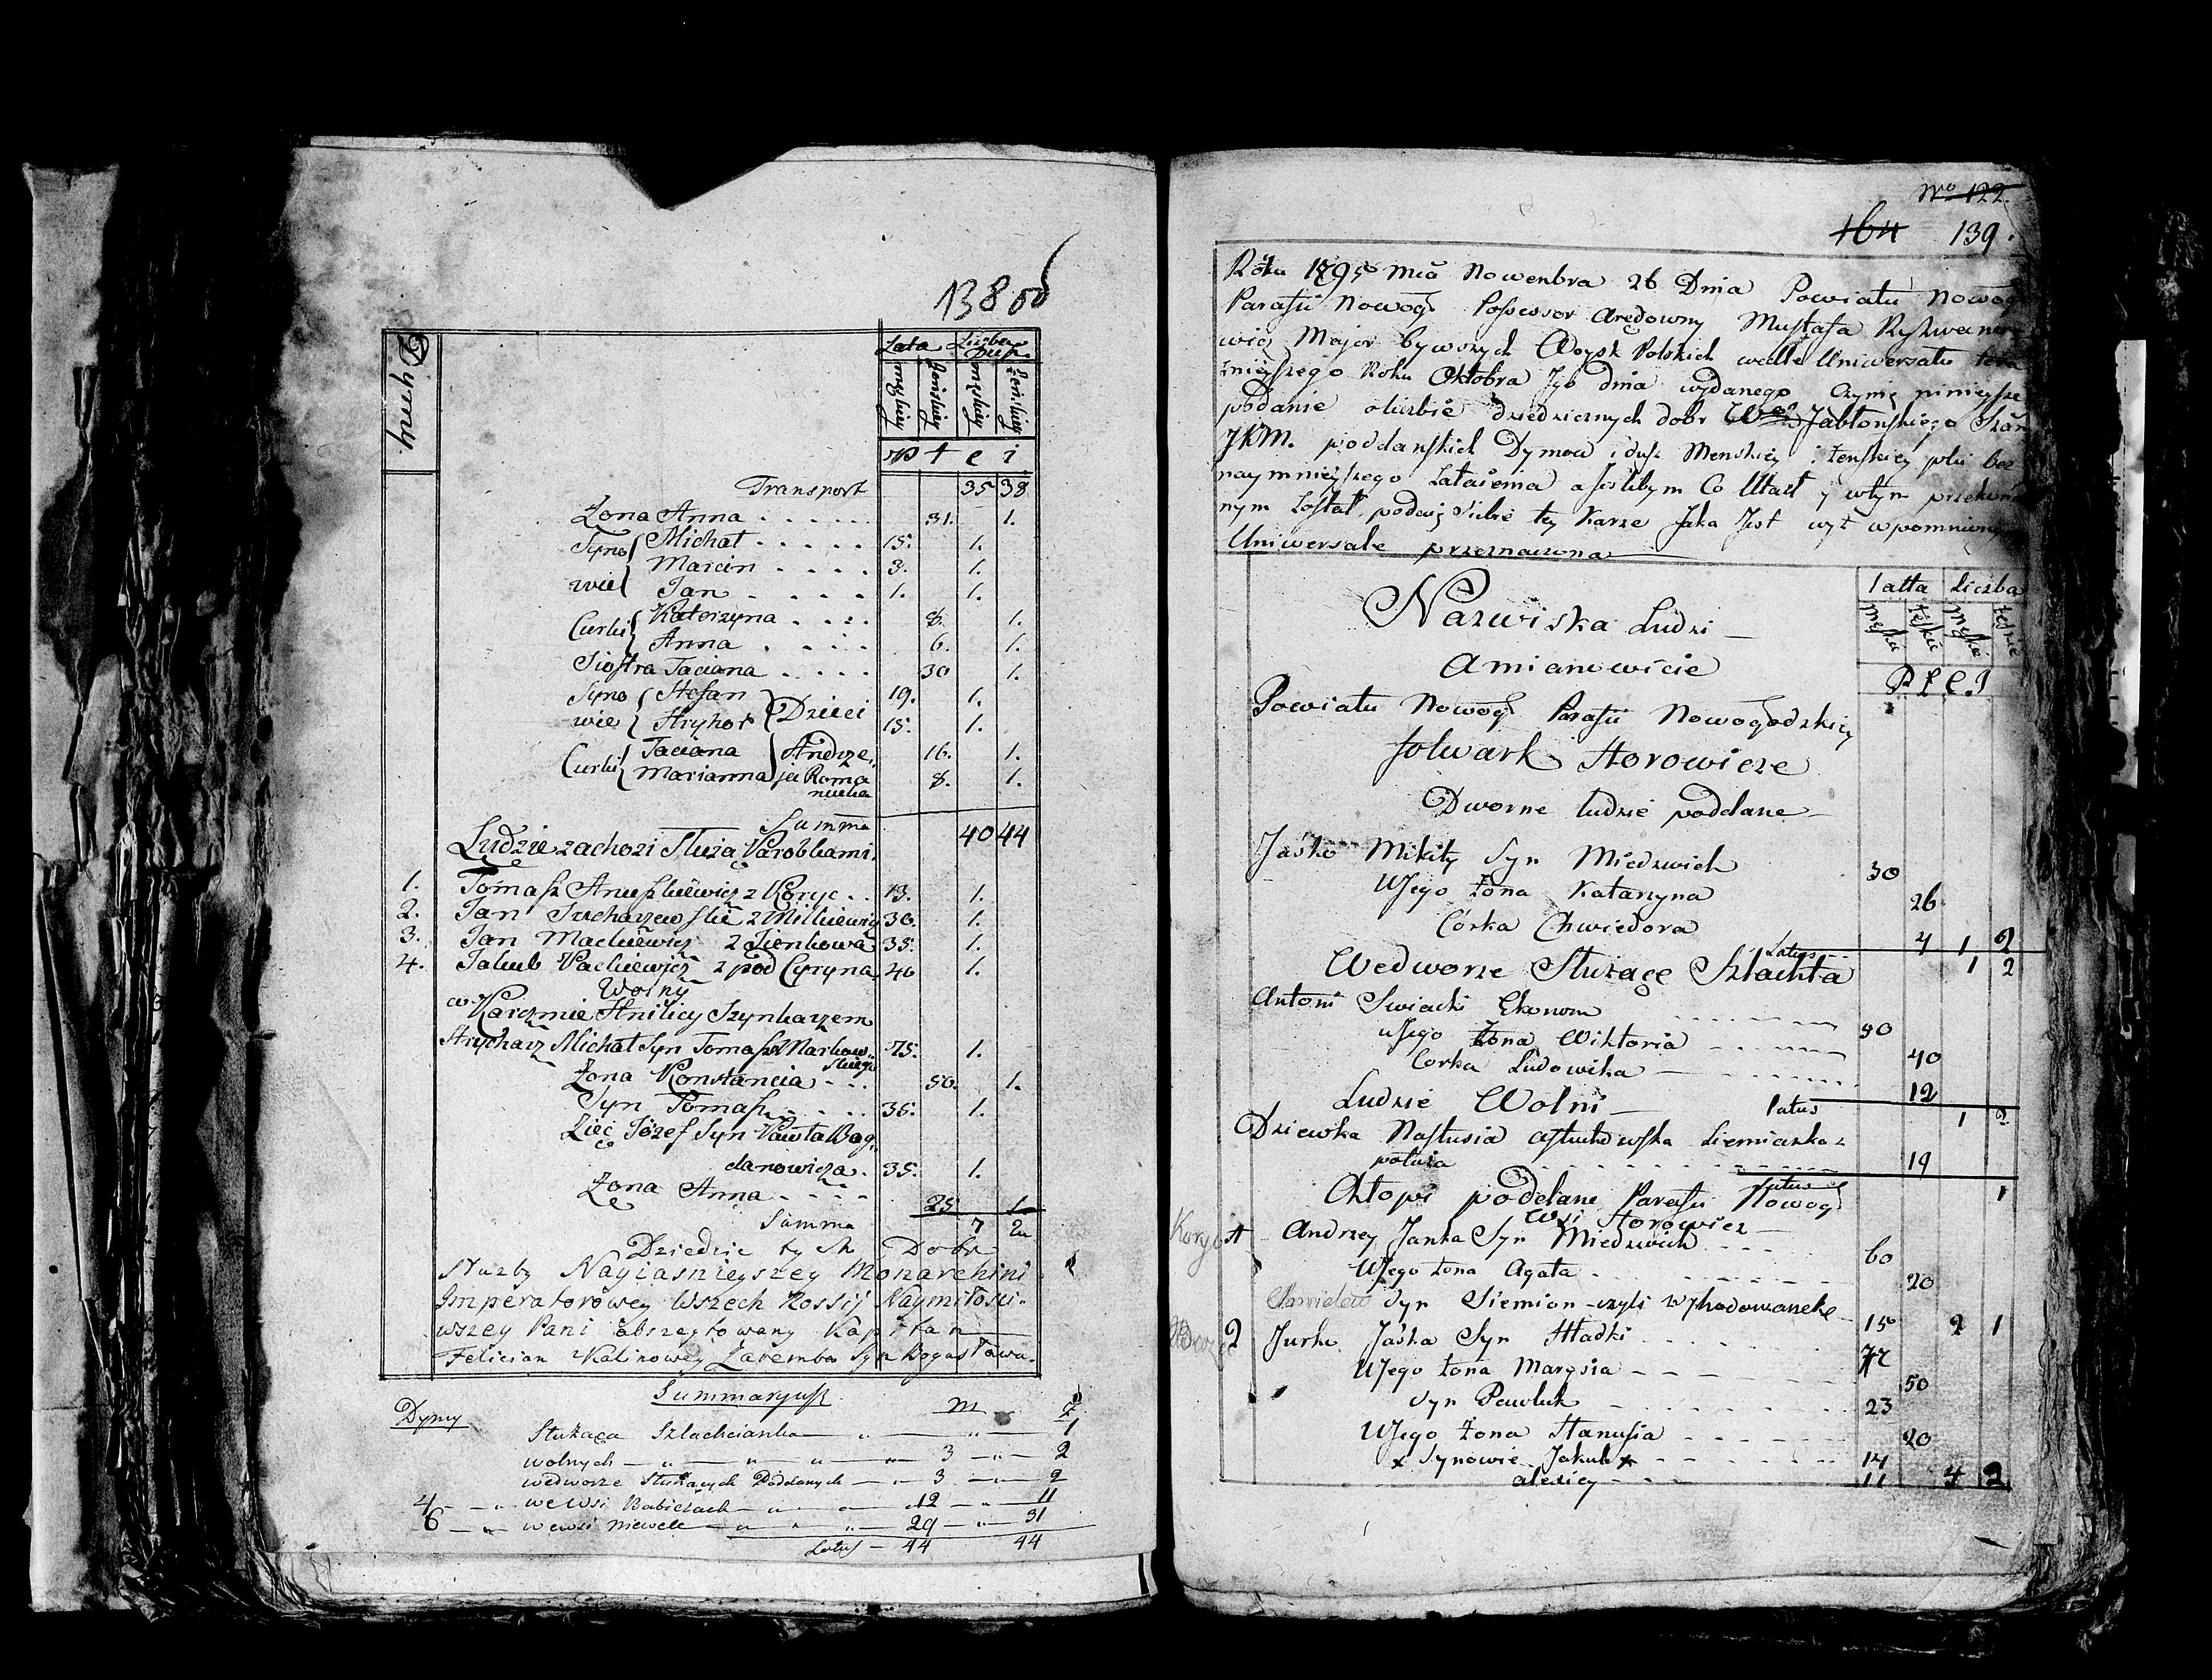 138 об
Dymy
Lata Liczba Dusz
męzkiey żeńskiey męzkiey żeńskiey
P ł e i
Transport 35 38
Żona Anna 31. 1.
Syno Michał 15. 1.
Marcin 3. 1.
wie Jan 1. 1.
Curki Katerzyna 8. 1.
Anna 6. 1.
Siostra Taciana 30 1.
Syno Stefan 19. 1.
wie Hryhor Dzieci 15. 1.
Curki Taciana Andrze 16. 1.
Marianna ja Roma 8. 1.
Summa 40 44
Ludzie zachozi Służą Parobkami
1. Tomasz Anuszkiewicz z Koryc 13. 1.
2. Jan Sucharzewski z 30. 1.
3. Jan Mackiewicz z Sienkowa 35. 1.
4. Jakub Packiewicz z pod Cyryna 40 1.
Wolny
w Karczmie Hnilicy Szynkarzem
Strycharz Michał Syn Tomasza Markow 75. 1.
skiego
Żona Konstancia 50. 1.
Syn Tomasz 35. 1.
Zięć Józef Syn Pawła Bog
danowicza 35. 1.
Żona Anna 25 1.
Summa 7 2
Dziedzic tych Dobr
Służby Nayiasnieyszey Monarchini
Imperatorowey Wszech Rossij Naymiłości
wszey Pani abszeytowany Kapitan
Felician z Kalinowey Zaremba Syn Bogusława
Summaryusz
Dymy m ż
Służąca Szlachcianka 1
wolnych 3 2
wedworze Służących Poddanych 3 2
4 we Wsi Babiczach 12 11
6 we wsi Niewele 29 31
Latus 44 44
No 122.
164 139.
Roku 1795 Mca Nowenbra 26 Dnia Powiatu Nowog
Parafii Nowog Possessor Arędowny Mustafa
wicz Major bywszych Woysk Polskich wedle Uniwersału tera
znieyszego Roku Oktobra dnia wydanego Czynię ninieysze
podanie oliczbie dziedzicznych dobr Jabłonskiego
JKM. poddanskich Dymow i dusz Menskiey i żenskiey płci bez
naymnieyszego Zataienia a Jeslibym Co Utaił y wtym przekona
nym Został podaię siebie tey Karze Jaka Jest wyż wpomnionym
Uniwersale przeznaczona
Nazwiska Ludzi latta liczba
Amianowicie P ł c i
Powiatu Nowog Parafii Nowogodzkiey
folwark Horowicze
Dworne ludzie poddane
Jaśko Mikity Syn Miedzwich 30
U Jego Żona Katarzyna 26
Córka Chwiedora 4 1 2
Latus 1 2
Wedworze Służące Szlachta
Antoni Swiacki Ekonom 50
u Jego Żona Wiktoria 40
Corka Ludowika 12
Ludzie Wolni latus 1 2
Dziewka Nastusia Ziemianka z
19
latus 1
Chłopi poddane Parafii Nowog
Wsi Horowicz
1 Andrzey Janka Syn Miedzwich 60
U Jego Żona Agata 20
Syn Siemion czyli wyhodowaneke 15 2 1
2 Jurko Jaśka Syn Hładki 72
U Jego Żona Marysia 50
Syn Pawluk 23
U Jego Żona Hanusia 20
x Synowie Jakub x 14
alexiey 11 4 2